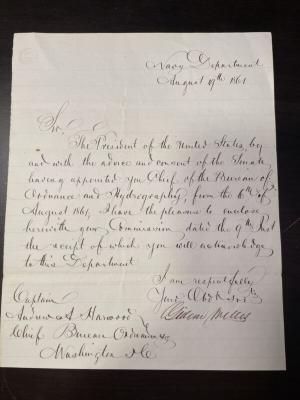 Navy Department
August 19th 1861
Sir,
The President of the United States, by
and with the advice and consent of the Senate
having appointed you Chief of the Bureau of
Ordnance and Hydrography, from the 6th of
August 1861, I have the pleasure to enclose
herewith your Commission dated the 9th Inst
the receipt of which you will acknowledge
to this Department
I am respectfully
Your Obdt
Gideon Welles
Captain
Andrew A Harwood
Chief Bureau Ordnance
Washington DC